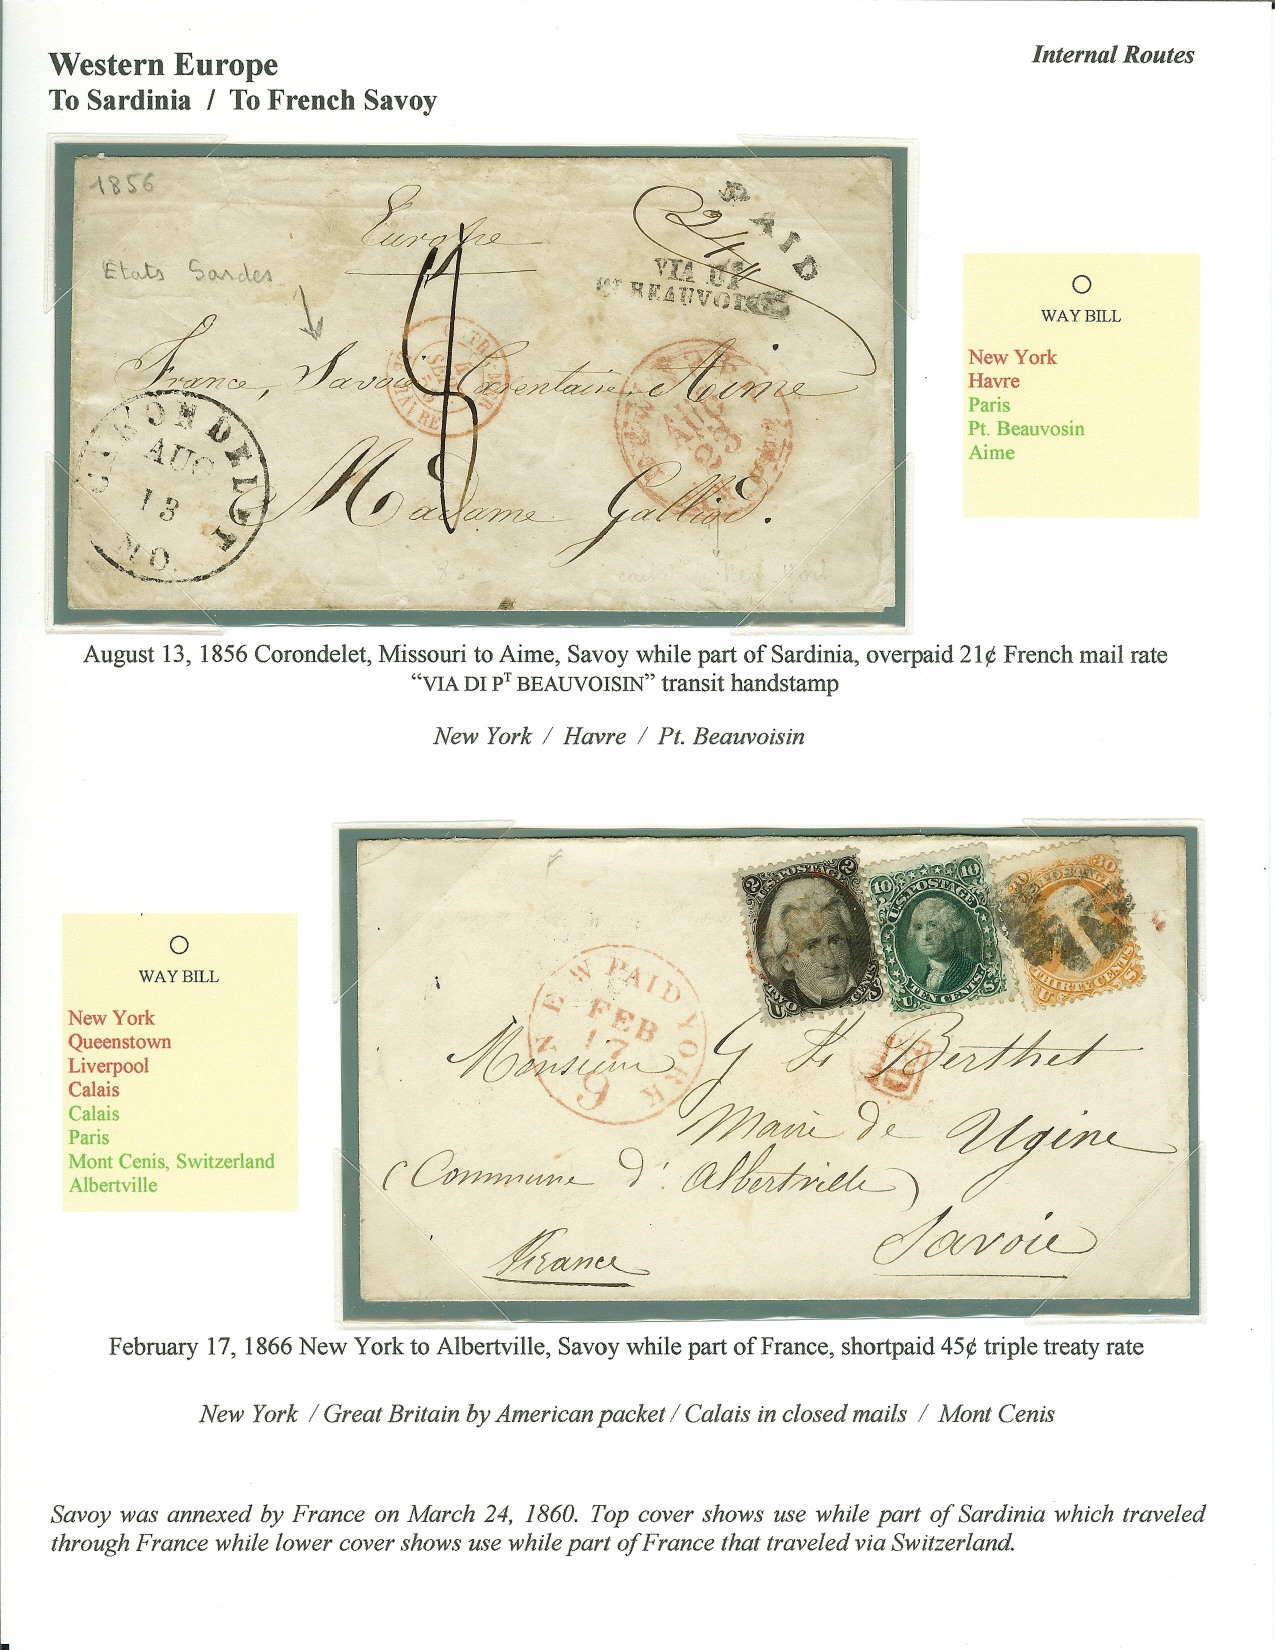 Western Europe
Internal Routes
To Sardinia / To French Savoy
1856
Europe
24
PAID
Etats Sardes
VIA DI
PT BEAUVOIS
France, Savoie Tarentaise Aime
CARONDELET
AUG
13
MO.
AUG
23
Madame Gallioz.
New York
WAY BILL
New York
Havre
Paris
Pt. Beauvosin
Aime
August 13, 1856 Corondelet, Missouri to Aime, Savoy while part of Sardinia, overpaid 21¢ French mail rate
“VIA DI PT BEAUVOISIN” transit handstamp
New York / Havre / Pt. Beauvoisin
WAY BILL
New York
Queenstown
Liverpool
Calais
Calais
Paris
Mont Cenis, Switzerland
Albertville
2 U.S. POSTAGE 2
TWO CENTS
U S
10 10
U.S. POSTAGE
TEN CENTS
U. S.
30 30
POSTAGE
THIRTY CENTS
U S
NEW PAID YORK
FEB
17
9
PD
Monsieur G Berthet
Maire de Ugine
(Commune d'Albertville)
Savoie
France
February 17, 1866 New York to Albertville, Savoy while part of France, shortpaid 45¢ triple treaty rate
New York / Great Britain by American packet / Calais in closed mails / Mont Cenis
Savoy was annexed by France on March 24, 1860. Top cover shows use while part of Sardinia which traveled
through France while lower cover shows use while part of France that traveled via Switzerland.